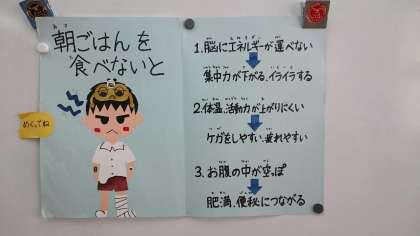 朝ごはんを
食べないと
めくってね
1.脳にエネルギーが運べない
集中力が下がる、イライラする
2.体温、活動力が上がりにくい
ケガをしやすい、疲れやすい
3.お腹の中が空っぽ
肥満、便秘につながる